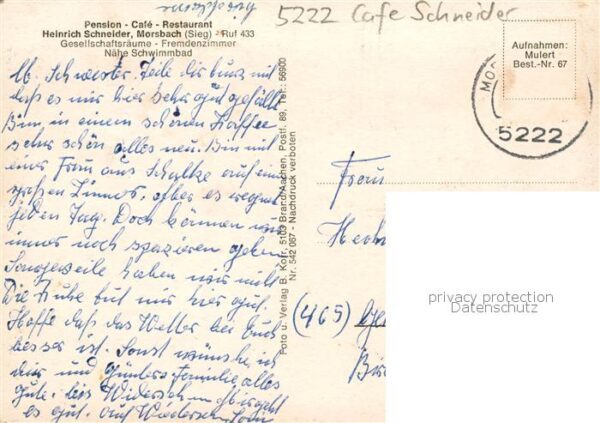 5222 Cafe Schneider
Pension - Café - Restaurant
Heinrich Schneider, Morsbach (Sieg) - Ruf 433
Gesellschaftsräume - Fremdenzimmer
Nähe Schwimmbad
Aufnahmen:
Mulert
Best.-Nr. 67
MO
5222
Schwester. Teile dir kurz mit
daß es mir hier sehr gut gefällt
Bin in einem schönen Kaffee
sehr schön alles neu. Bin mit
einer Frau aus Schalke auf ein
großen Zimmer, aber es regnet
jeden Tag. Doch können wir
immer noch spazieren gehen
Langeweile haben wir nicht
Die Ruhe tut mir hier gut.
Hoffe daß das Wetter bei Euch
besser ist. Sonst wünsche ich
dir und Günters Familie alles
gute, bis Wiedersehn
es gut. Auf Wiedersehn
Foto u. Verlag B. Kofr, 5103 Brand/Aachen, Postf. 89, Tel.: 56900
Nr. 542 067 - Nachdruck verboten
Frau
(465)
privacy protection
Datenschutz